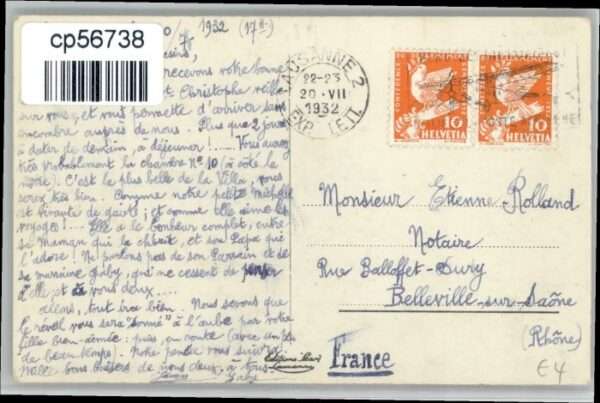 cp56738
1932 (17 h)
recevons votre bonne
Christophe veille
sur vous, et vous permette d'arriver sans
encombre auprès de nous. Plus que 2 jours
à dater de demain, à déjeuner!...... Vous aurez
très probablement la chambre No 10 (à côté de
C'est la plus belle de la Villa, vous
serez très bien. Comme notre petite
est vivante de gaieté; et comme elle aime les
voyages!.... Elle a le bonheur complet, entre
sa Maman qui la chérit, et son Papa qui
l'adore! Ne parlons pas de son Parrain et de
sa marraine Gaby, qui ne cessent de penser
d'elle et à vous deux.....
allons, tout ira bien. Nous savons que
le réveil vous sera "sonné" à l'aube par votre
fille bien-aimée: puis, en route (avec un
de beau temps). Notre pensée vous suivra
bons baisers de nous deux, à tous.
Gaby
LAUSANNE 2
22-23
20·VII
1932
EXP. LETT.
CONFERENCE
10
HELVETIA
CONFERENCE
10
HELVETIA
Monsieur Etienne Rolland
Notaire
Rue Balloffet-Dury
Belleville-sur-Saône
(Rhône)
France
€4